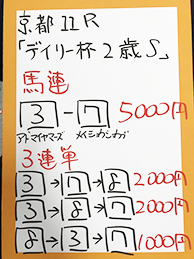 京都11R
「デイリー杯2歳S」
馬連
3-7 5000円
アドマイヤマーズ
3連単
3→7→8 2000円
3→8→7 2000円
8→3→7 1000円